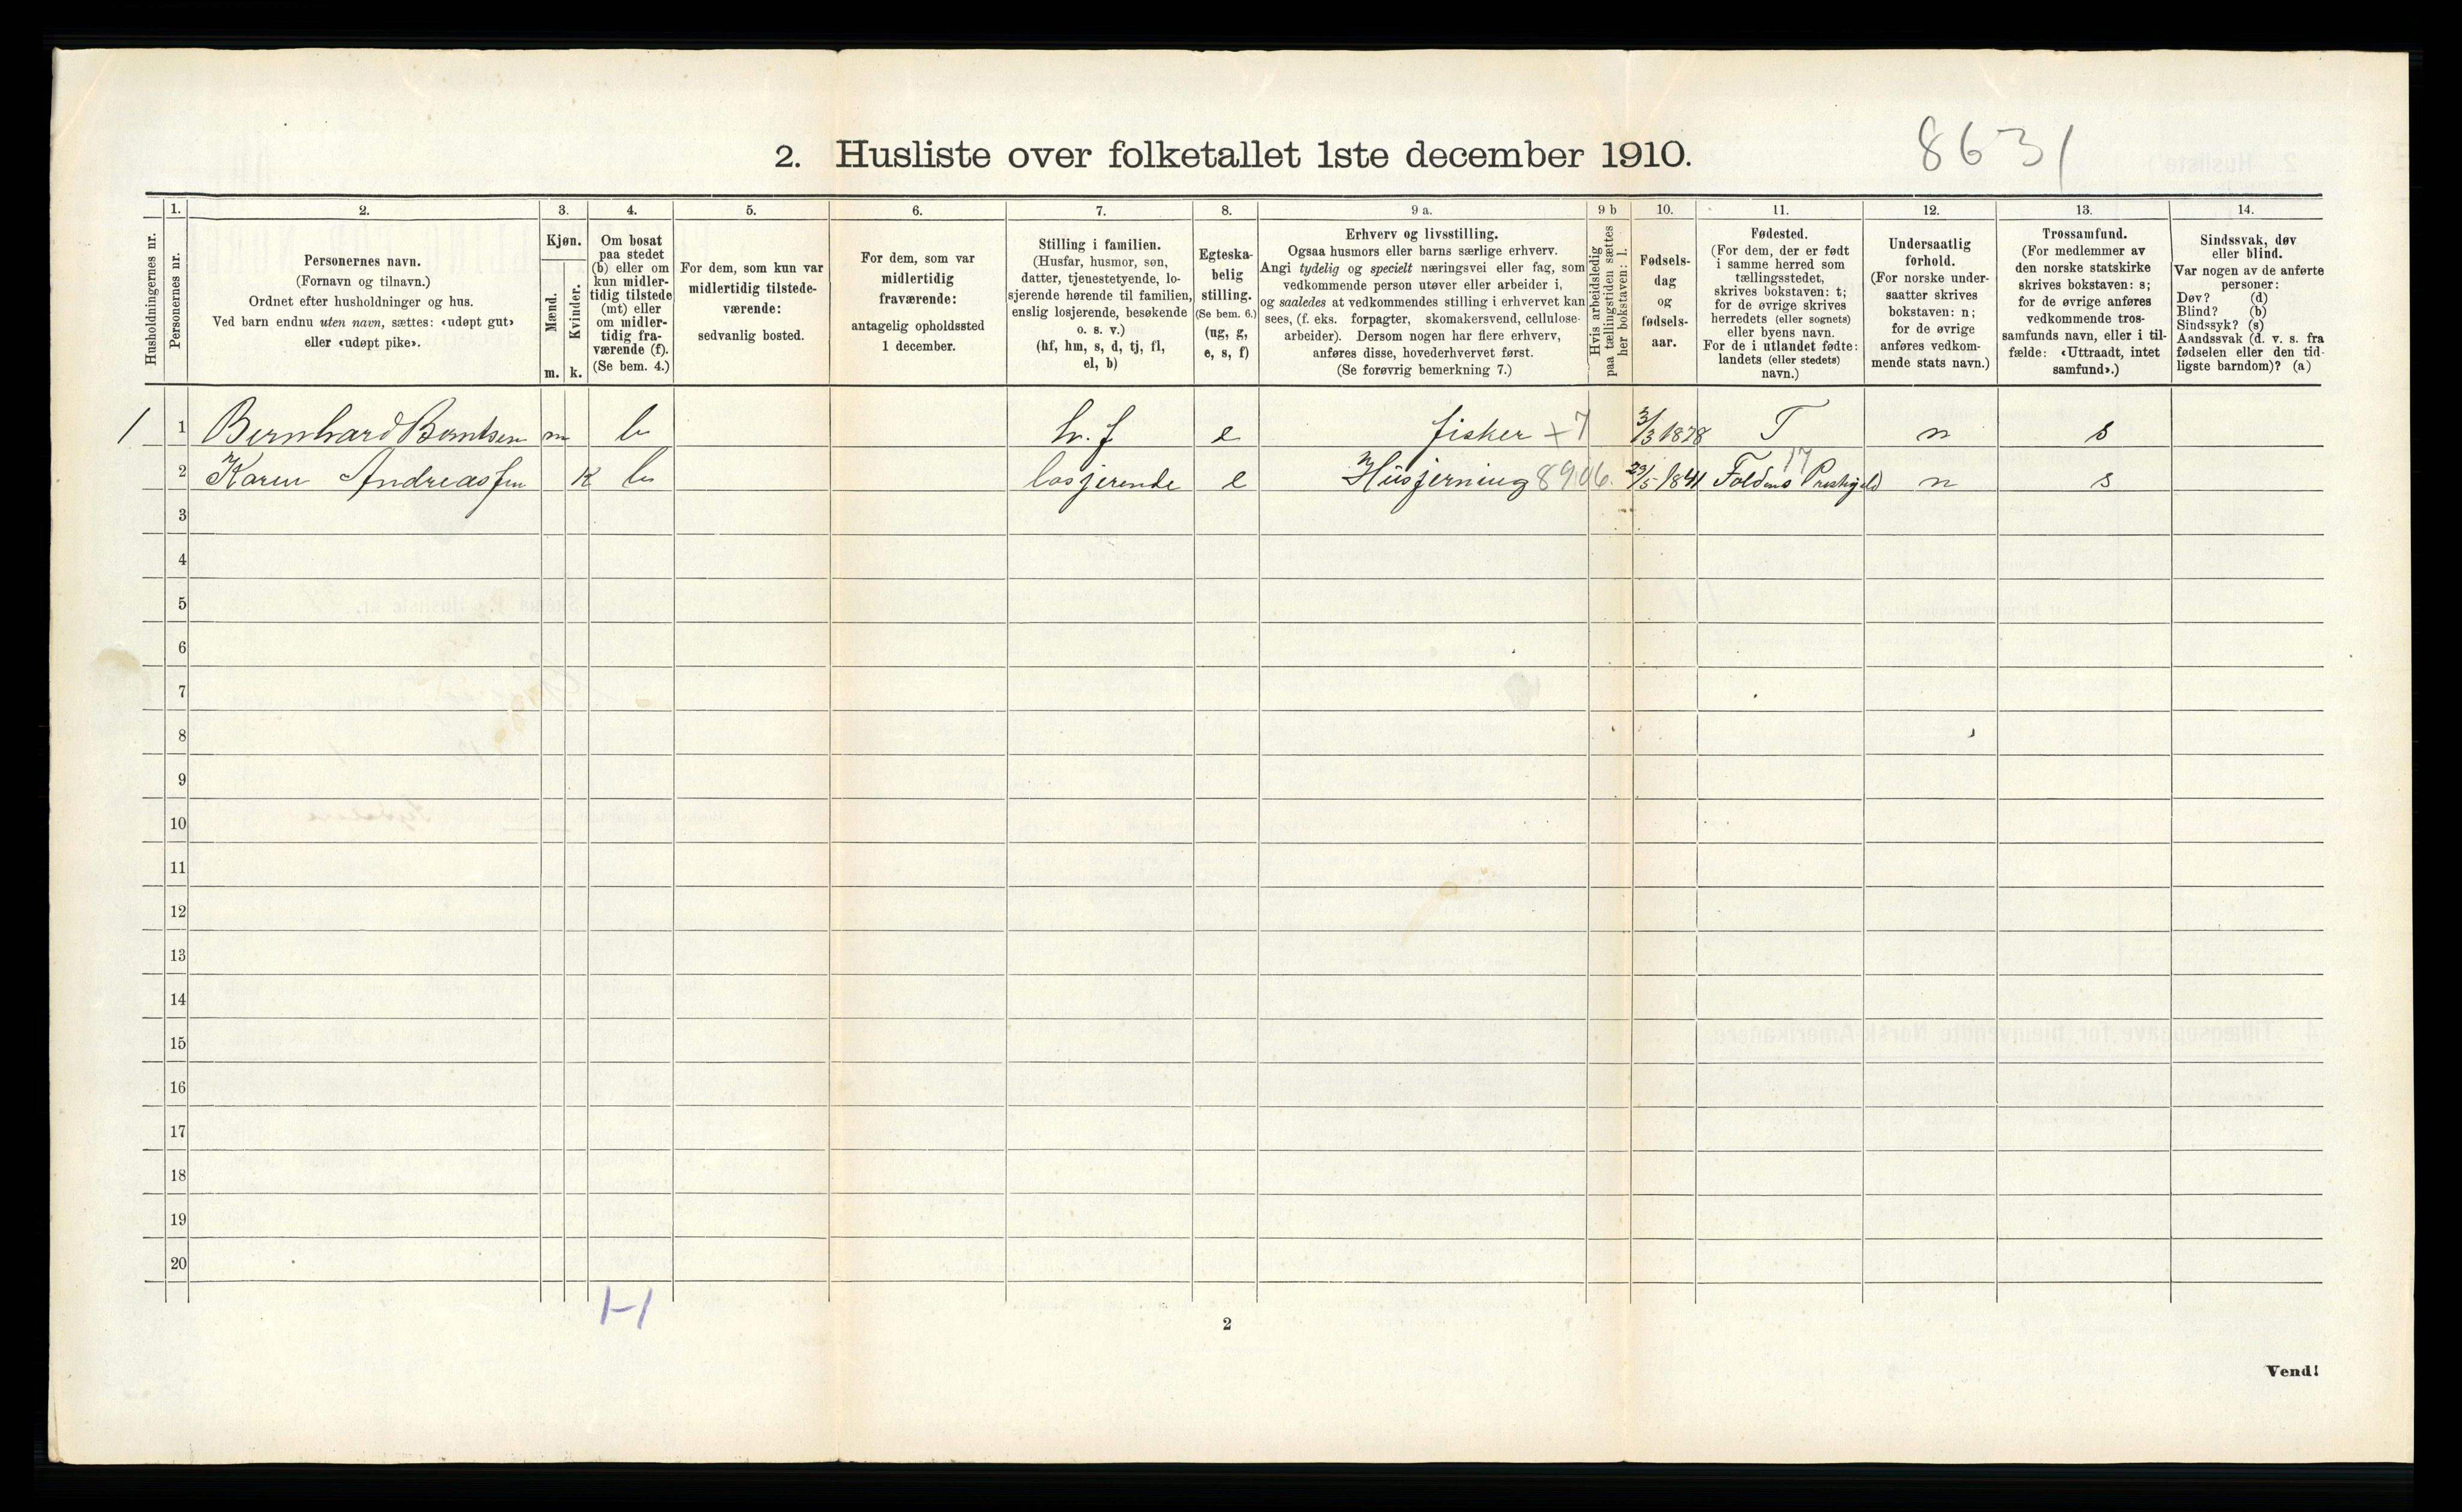 2. Husliste over folketallet 1ste december 1910.
8631
Husholdningernes nr.
1.
Personernes nr.
2.
Personernes navn.
(Fornavn og tilnavn.)
Ordnet efter husholdninger og hus.
Ved barn endnu uten navn, sættes: «udøpt gut»
eller «udøpt pike».
3.
Kjøn.
Mænd.
Kvinder.
m. k.
4.
Om bosat
paa stedet
(b) eller om
kun midler-
tidig tilstede
(mt) eller
om midler-
tidig fra-
værende (f).
(Se bem. 4.)
5.
For dem, som kun var
midlertidig tilstede-
værende:
sedvanlig bosted.
6.
For dem, som var
midlertidig
fraværende:
antagelig opholdssted
1 december.
7.
Stilling i familien.
(Husfar, husmor, søn,
datter, tjenestetyende, lo-
sjerende hørende til familien,
enslig losjerende, besøkende
o. s. v.)
(hf, hm, s, d, tj, fl,
el, b)
8.
Egteska-
belig
stilling.
(Se bem. 6.)
(ug, g,
e, s, f)
9 a.
Erhverv og livsstilling.
Ogsaa husmors eller barns særlige erhverv.
Angi tydelig og specielt næringsvei eller fag, som
vedkommende person utøver eller arbeider i,
og saaledes at vedkommendes stilling i erhvervet kan
sees, (f. eks. forpagter, skomakersvend, cellulose-
arbeider). Dersom nogen har flere erhverv,
anføres disse, hovederhvervet først.
(Se forøvrig bemerkning 7.)
9 b
Hvis arbeidsledig
paa tællingstiden sættes
her bokstaven: l.
10.
Fødsels-
dag
og
fødsels-
aar.
11.
Fødested.
(For dem, der er født
i samme herred som
tællingsstedet,
skrives bokstaven: t;
for de øvrige skrives
herredets (eller sognets)
eller byens navn.
For de i utlandet fødte:
landets (eller stedets)
navn.)
12.
Undersaatlig
forhold.
(For norske under-
saatter skrives
bokstaven: n;
for de øvrige
anføres vedkom-
mende stats navn.)
13.
Trossamfund.
(For medlemmer av
den norske statskirke
skrives bokstaven: s;
for de øvrige anføres
vedkommende tros-
samfunds navn, eller i til-
fælde: «Uttraadt, intet
samfund».)
14.
Sindssvak, døv
eller blind.
Var nogen av de anførte
personer:
Døv? (d)
Blind? (b)
Sindssyk? (s)
Aandssvak (d. v. s. fra
fødselen eller den tid-
ligste barndom)? (a)
1 1 Bernhard Berntsen m b h. f e fisker + 7 3/3 1878 T n s
2 Karen Andreassen K b losjerende e Husjerning 8906. 29/5 1841 Foldens Prestegjeld 17 n s
3
4
5
6
7
8
9
10
11
12
13
14
15
16
17
18
19
20
1-1
2
Vend!